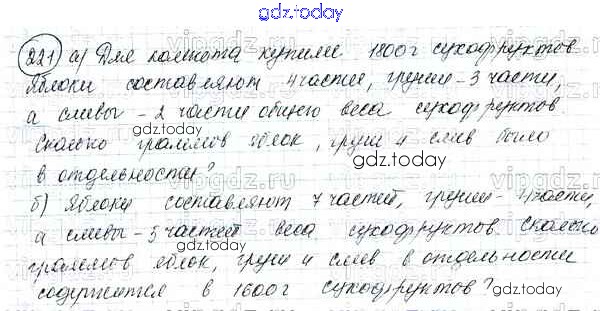 gdz.today
221 а) Для компота купили 1800г сухофруктов.
Яблоки составляют 4 части, груши - 3 части,
а сливы - 2 части общего веса сухофруктов.
gdz.today
Сколько граммов яблок, груш и слив было
gdz.today
в отдельности?
б) Яблоки составляют 7 частей, груши - 4 части,
gdz.today
а сливы - 5 частей веса сухофруктов. Сколько
gdz.today
граммов яблок, груш и слив в отдельности
содержится в 1600г сухофруктов?
gdz.today